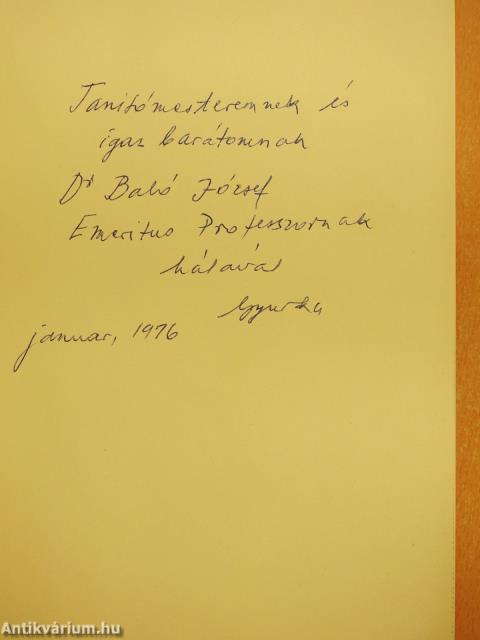 Tanitómesteremnek és
igaz barátomnak
Dr Baló József
Emeritus Professzornak
hálával
Gyurka
januar, 1976
Antikvárium.hu